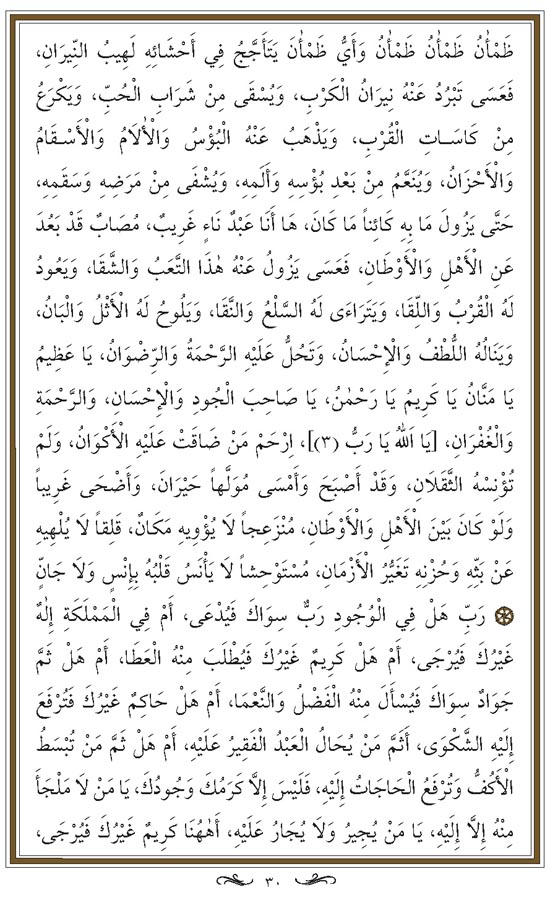 ظَمْأٰنُ ظَمْأٰنُ ظَمْأٰنُ وَأَيُّ ظَمْأٰنَ يَتَأَجَّجُ فِي أَحْشَائِهِ لَهِيبُ النِّيرَانِ،
فَعَسَى تَبْرُدُ عَنْهُ نِيرَانُ الْكَرْبِ، وَيُسْقَى مِنْ شَرَابِ الْحُبِّ، وَيَكْرَعُ
مِنْ كَاسَاتِ الْقُرْبِ، وَيَذْهَبُ عَنْهُ الْبُؤْسُ وَالْأٰلَامُ وَالْأَسْقَامُ
وَالْأَحْزَانُ، وَيُنَعَّمُ مِنْ بَعْدِ بُؤْسِهِ وَأَلَمِهِ، وَيُشْفَى مِنْ مَرَضِهِ وَسَقَمِهِ،
حَتَّى يَزُولَ مَا بِهِ كَائِناً مَا كَانَ، هَا أَنَا عَبْدٌ نَاءٍ غَرِيبٌ، مُصَابٌ قَدْ بَعُدَ
عَنِ الْأَهْلِ وَالْأَوْطَانِ، فَعَسَى يَزُولُ عَنْهُ هٰذَا التَّعَبُ وَالشَّقَا، وَيَعُودُ
لَهُ الْقُرْبُ وَاللِّقَا، وَيَتَرَاءَى لَهُ السَّلْعُ وَالنَّقَا، وَيَلُوحُ لَهُ الْأَثْلُ وَالْبَانُ،
وَيَنَالُهُ اللُّطْفُ وَالْإِحْسَانُ، وَتَحُلُّ عَلَيْهِ الرَّحْمَةُ وَالرِّضْوَانُ، يَا عَظِيمُ
يَا مَنَّانُ يَا كَرِيمُ يَا رَحْمٰنُ، يَا صَاحِبَ الْجُودِ وَالْإِحْسَانِ، وَالرَّحْمَةِ
وَالْغُفْرَانِ، [يَا اَللهُ يَا رَبُّ (٣)]، اِرْحَمْ مَنْ ضَاقَتْ عَلَيْهِ الْأَكْوَانُ، وَلَمْ
تُؤْنِسْهُ الثَّقَلَانِ، وَقَدْ أَصْبَحَ وَأَمْسَى مُوَلَّهاً حَيْرَانَ، وَأَضْحَى غَرِيباً
وَلَوْ كَانَ بَيْنَ الْأَهْلِ وَالْأَوْطَانِ، مُنْزَعِجاً لَا يُؤْوِيهِ مَكَانٌ، قَلِقاً لَا يُلْهِيهِ
عَنْ بَثِّهِ وَحُزْنِهِ تَغَيُّرُ الْأَزْمَانِ، مُسْتَوْحِشاً لَا يَأْنَسُ قَلْبُهُ بِإِنْسٍ وَلَا جَانٍّ
رَبِّ هَلْ فِي الْوُجُودِ رَبٌّ سِوَاكَ فَيُدْعَى، أَمْ فِي الْمَمْلَكَةِ إِلٰهٌ
غَيْرُكَ فَيُرْجَى، أَمْ هَلْ كَرِيمٌ غَيْرُكَ فَيُطْلَبَ مِنْهُ الْعَطَا، أَمْ هَلْ ثَمَّ
جَوَادٌ سِوَاكَ فَيُسْأَلَ مِنْهُ الْفَضْلُ وَالنَّعْمَا، أَمْ هَلْ حَاكِمٌ غَيْرُكَ فَتُرْفَعَ
إِلَيْهِ الشَّكْوَى، أَثَمَّ مَنْ يُحَالُ الْعَبْدُ الْفَقِيرُ عَلَيْهِ، أَمْ هَلْ ثَمَّ مَنْ تُبْسَطُ
الْأَكُفُّ وَتُرْفَعُ الْحَاجَاتُ إِلَيْهِ، فَلَيْسَ إِلَّا كَرَمُكَ وَجُودُكَ، يَا مَنْ لَا مَلْجَأَ
مِنْهُ إِلَّا إِلَيْهِ، يَا مَنْ يُجِيرُ وَلَا يُجَارُ عَلَيْهِ، أَهٰهُنَا كَرِيمٌ غَيْرُكَ فَيُرْجَى،
٣٠